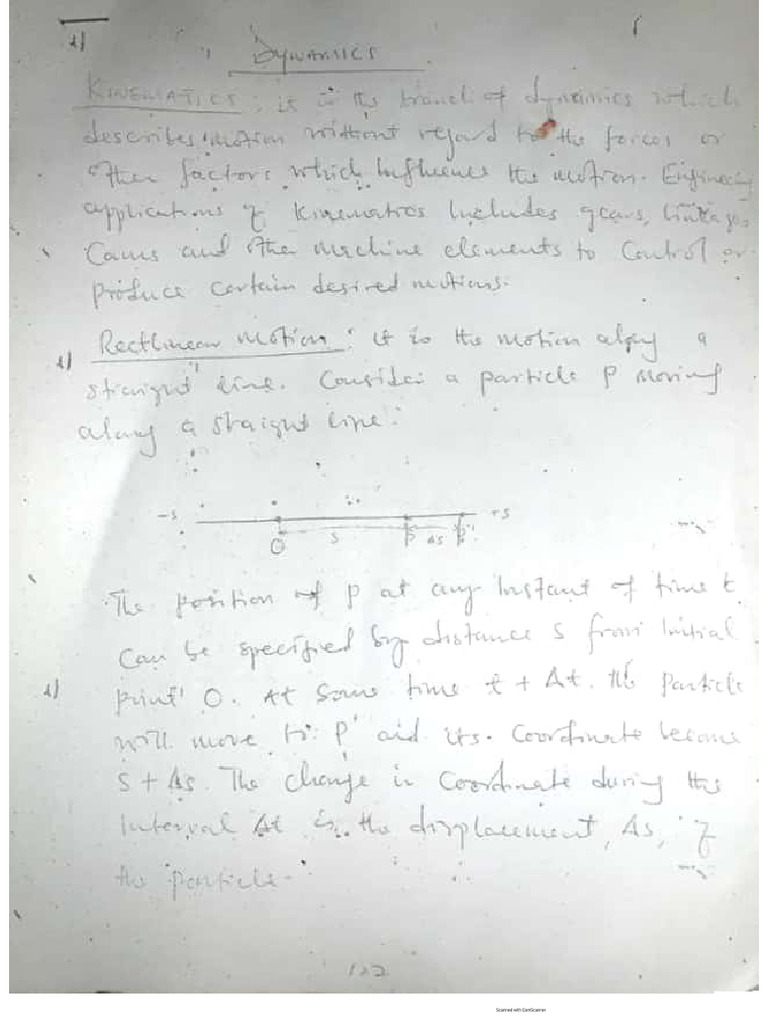 DYNAMICS
KINEMATICS : it is the branch of dynamics which
describes motion without regard to the forces or
other factors which influences the motion. Engineering
applications of kinematics includes gears, linkages
Cams and other machine elements to control or
produce certain desired motions.
Rectlinear motion : it is the motion along a
straight line. Consider a particle P moving
along a straight line.
-S +S
O S P ΔS P'
The position of P at any instant of time t
can be specified by distance S from initial
point O. At some time t + Δt. the particle
will move to P' and its coordinate become
S + Δs. The change in coordinate during the
interval Δt is the displacement, Δs, of
the particle.
Scanned with CamScanner